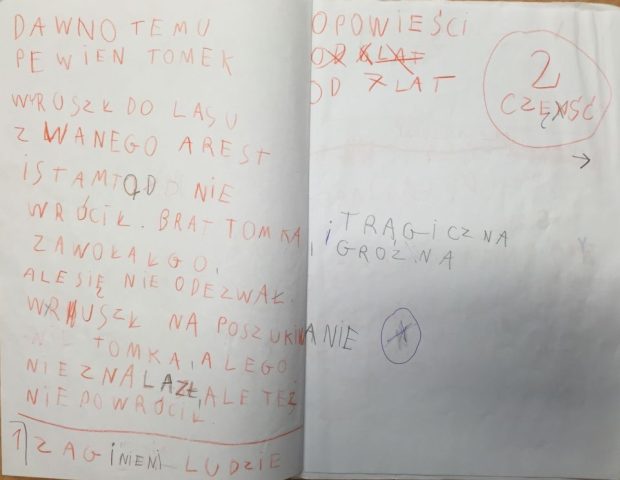 DAWNO TEMU
PEWIEN TOMEK
WYRUSZŁ DO LASU
ZWANEGO AREST
I STAMTĄD NIE
WRÓCIŁ. BRAT TOMKA
ZAWOŁAŁ GO,
ALE SIĘ NIE ODEZWAŁ.
WRUSZŁ NA POSZUKIWANIE
TOMKA, A LEGO
NIE ZNALAZŁ, ALE TEŻ
NIE POWRÓCIŁ.
1) ZAGINIENI LUDZIE
OPOWIEŚCI
OD 7 LAT
2
CZĘŚĆ
→
i TRAGICZNA
GROŹNA